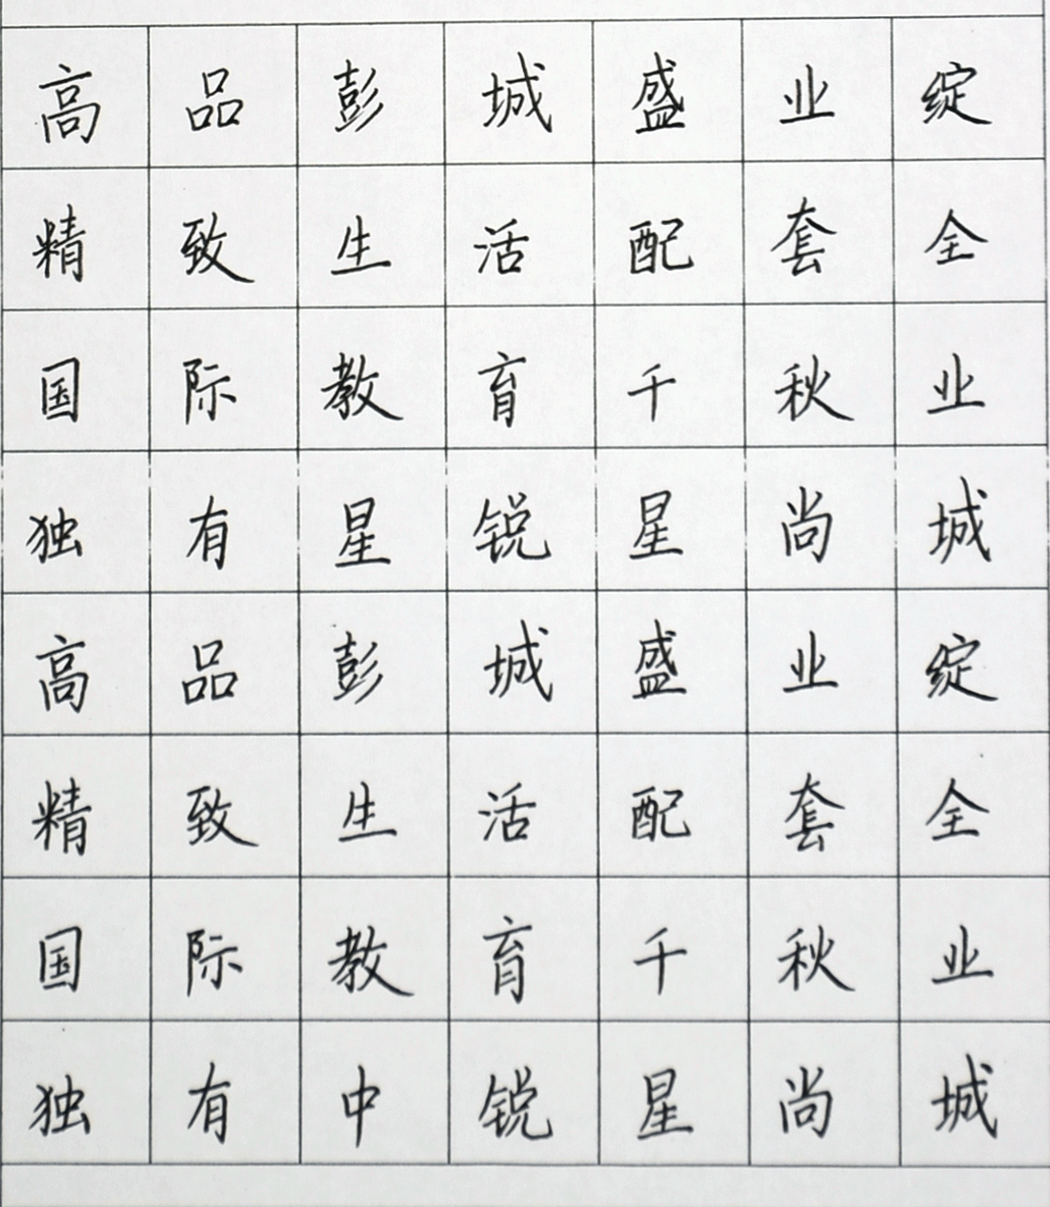 高品彭城盛业绽
精致生活配套全
国际教育千秋业
独有星锐星尚城
高品彭城盛业绽
精致生活配套全
国际教育千秋业
独有中锐星尚城